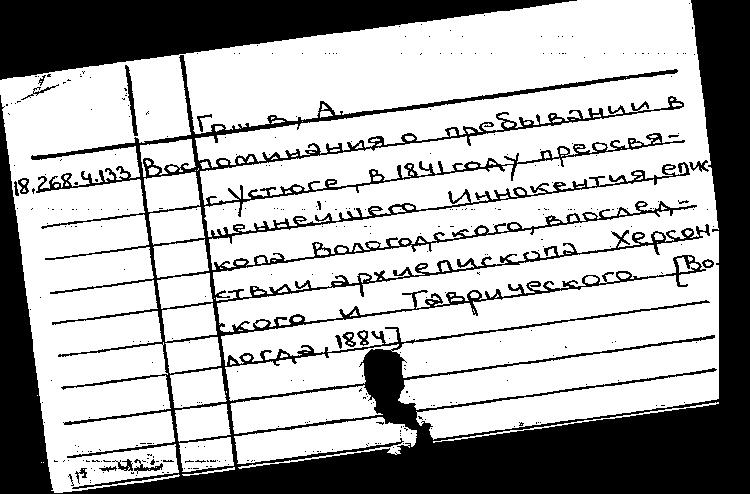 Гр...в, А.
18.268.4.133 Воспоминания о пребывании в
г. Устюге, в 1841 году преосвя-
щеннейшего Иннокентия, епис-
копа Вологодского, впослед-
ствии архиепископа Херсон-
ского и Таврического. [Во-
логда, 1884]